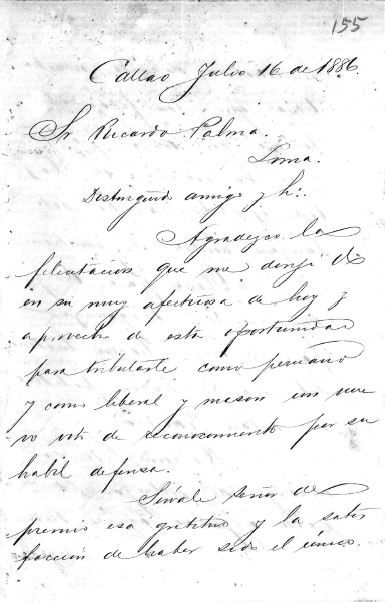 155
Callao Julio 16 de 1886.
Sr Ricardo Palma.
Lima.
Distinguido amigo y h∴
Agradezco la
felicitacion que me dirije Ud.
en su muy afectuosa de hoy y
aprovecho de esta oportunidad
para tributarle como peruano
y como liberal y mason un nue
vo voto de reconocimiento por su
habil defensa.
Sírvale Señor de
premio esa gratitud y la satis
faccion de haber sido el único.